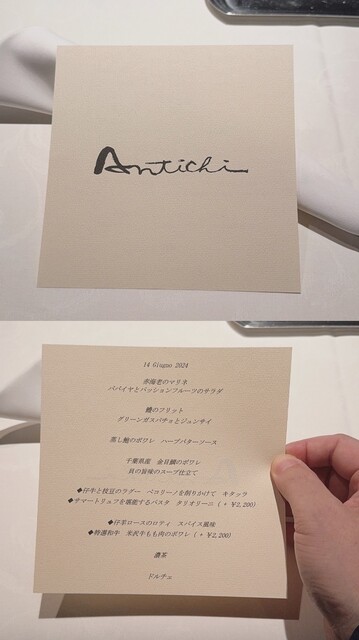 Antichi
14 Giugno 2024
赤海老のマリネ
パパイヤとパッションフルーツのサラダ
鱧のフリット
グリーンガスパチョとジュンサイ
蒸し鮑のポワレ　ハーブバターソース
千葉県産　金目鯛のポワレ
貝の旨味のスープ仕立て
◆仔牛と枝豆のラグー　ペコリーノを削りかけて　キタッラ
◆サマートリュフを堪能するパスタ　タリオリーニ（＋￥2,200）
◆仔羊ロースのロティ　スパイス風味
◆特選和牛　米沢牛もも肉のポワレ（＋￥2,200）
濃茶
ドルチェ